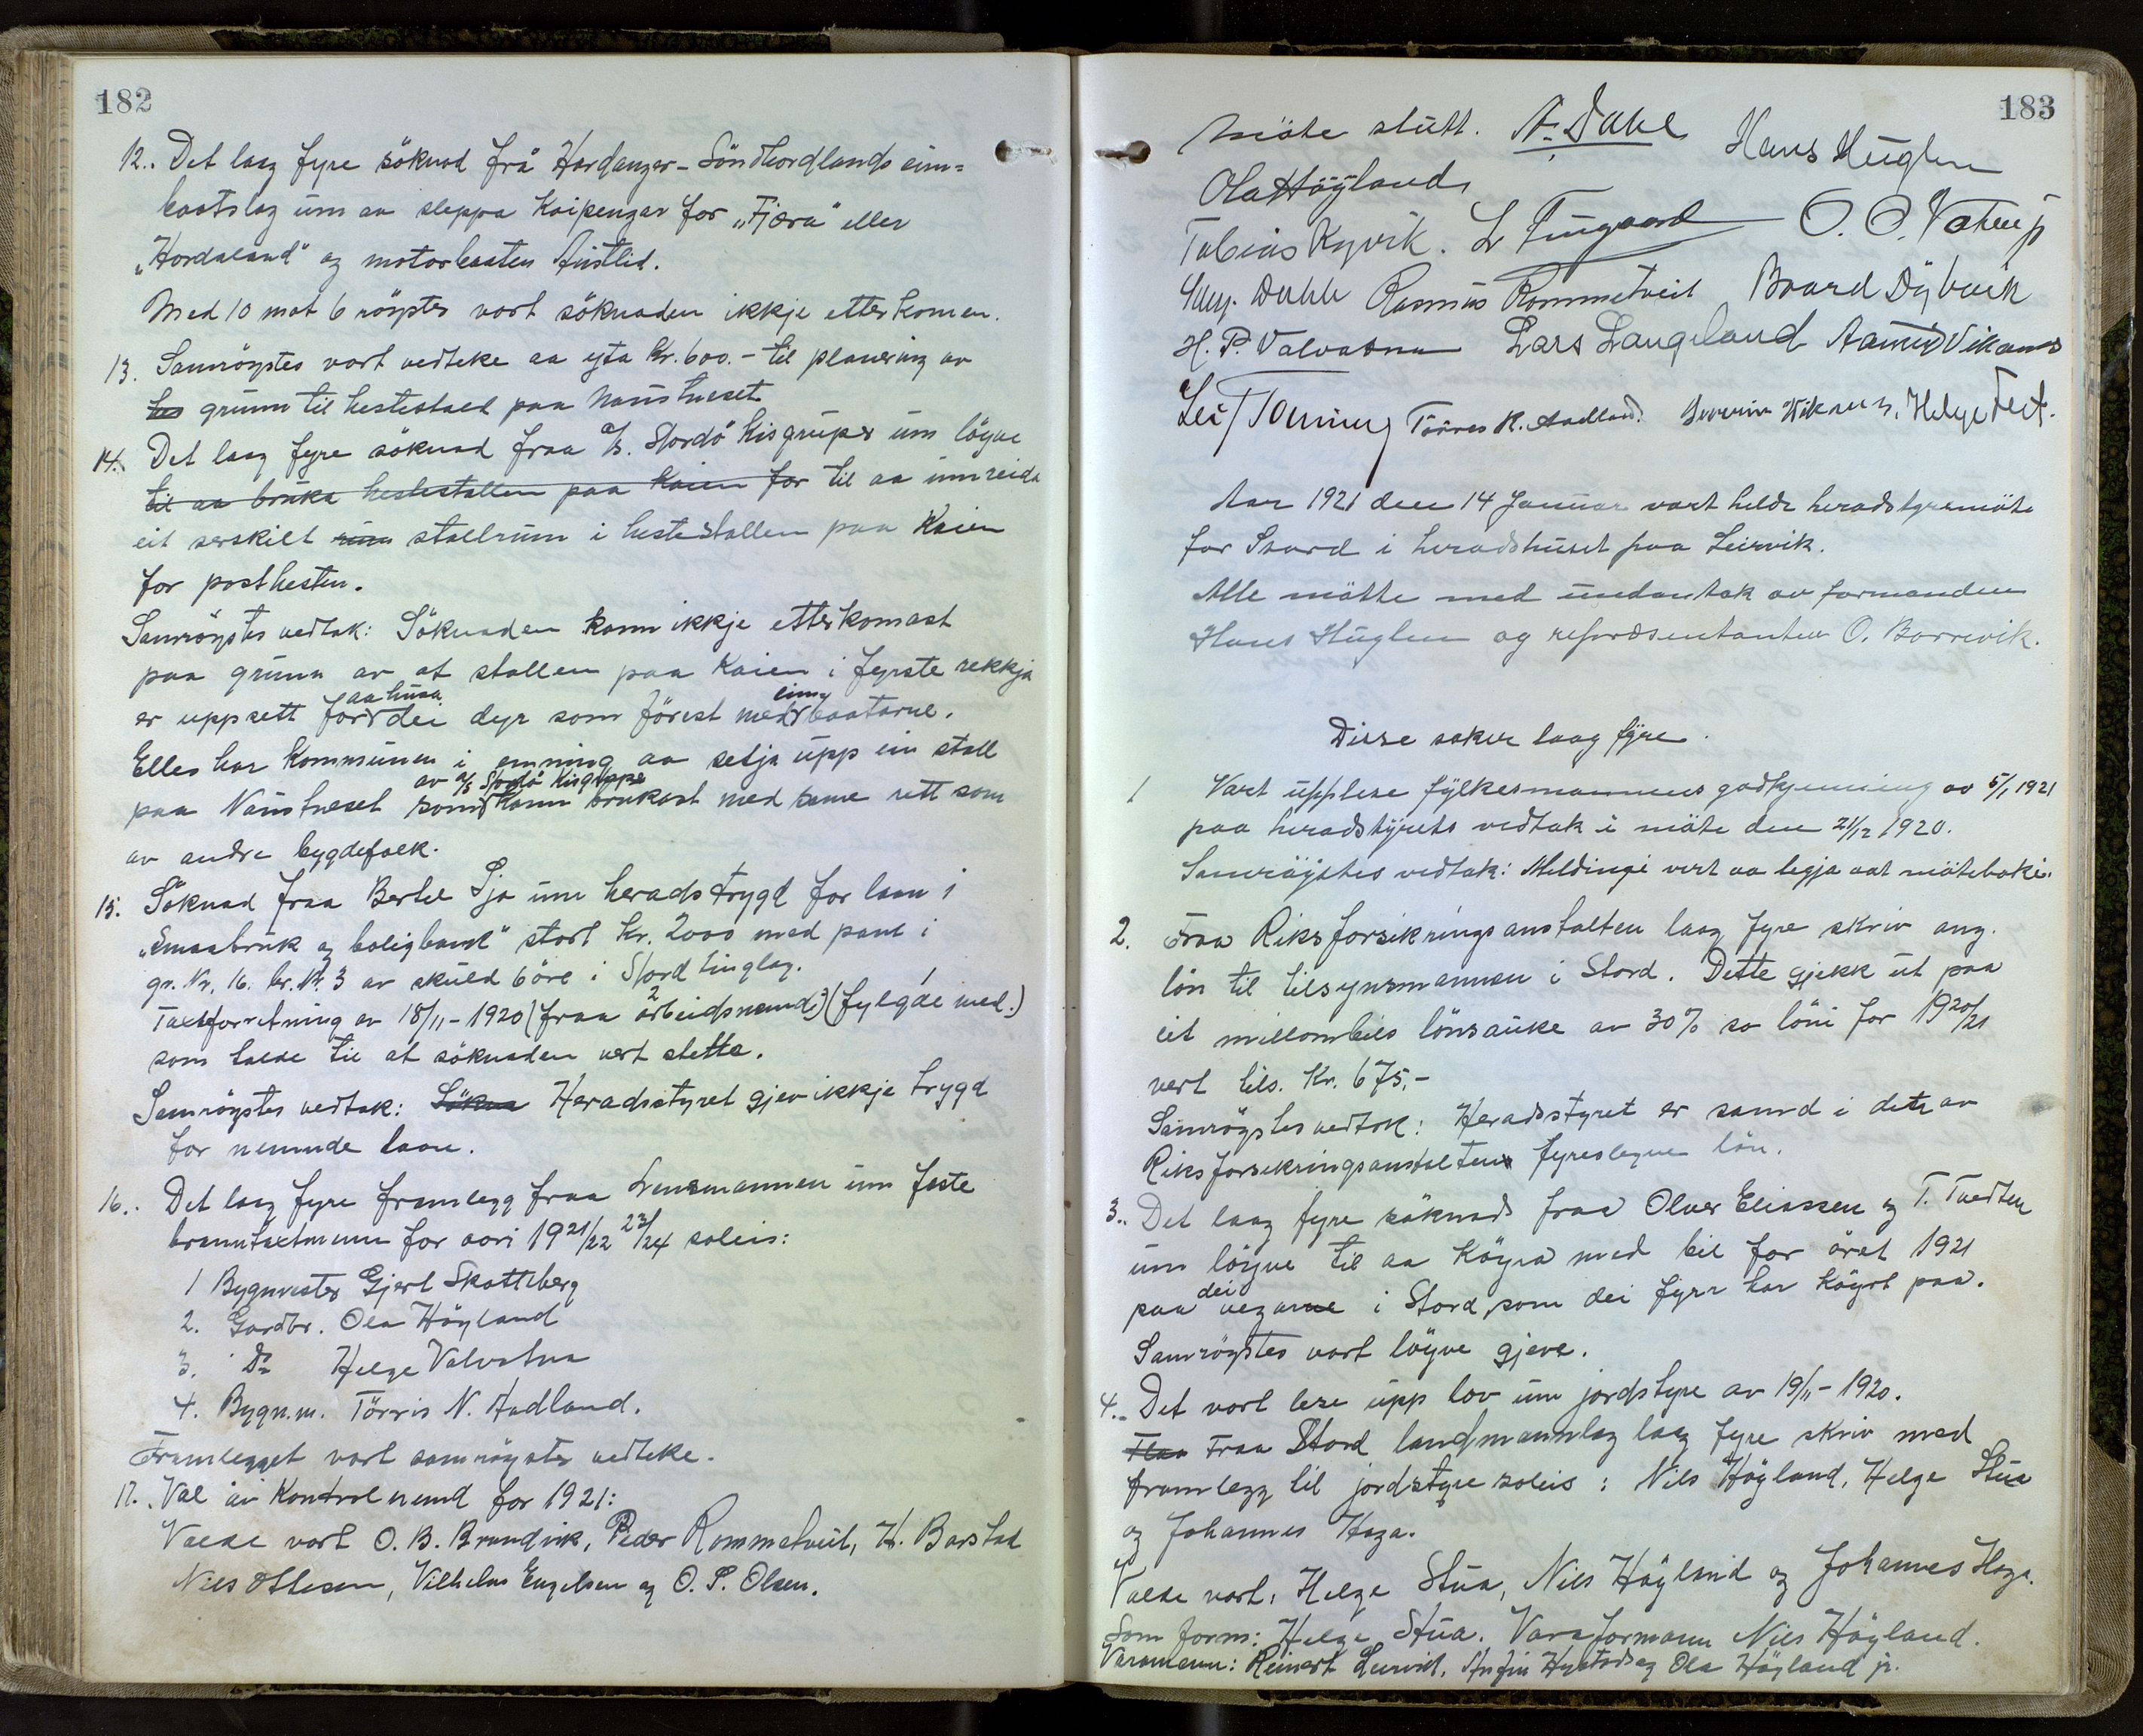 182
12. Det laag fyre söknad frå Hardanger-Söndhordlands eim=
baatslag um aa sleppa Kaipengar for „Fjæra" eller
„Hordaland" og motorbaaten Austlid.
Med 10 mot 6 röyster vart söknaden ikkje etterkomen.
13. Samröystes vart vedteke aa yta Kr. 600.- til planering av
hes grunn til hestestall paa Naustneset
14. Det laag fyre söknad fraa A/S. Stordö Kisgruper um löyve
til aa bruka hestestallen paa Kaien for til aa innreida
eit serskilt rum stallrum i hestestallen paa Kaien
for posthesten.
Samröystes vedtak: Söknaden kann ikkje etterkomast
paa grunn av at stallen paa Kaien i fyrste rekkja
er uppsett for aa husa dei dyr som förest med eimbaatarne.
Elles har Kommunen i emning aa setja upp ein stall
paa Naustneset som av A/S Stordö Kisgruppe kann brukast med same rett som
av andre bygdefolk.
15. Söknad fraa Bertel Tjo um heradstrygd for laan i
„Smaabruk og boligbank" stort kr. 2000 med pant i
gr. Nr. 16. br. Nr. 3 av skuld 6 öre i Stord tinglag.
Taxtforretning av 18/11-1920 (fraa arbeidsnemdi) (fylgde med.)
som talde til at söknaden vert stetta.
Samröystes vedtak: Sökna Heradsstyret gjev ikkje trygd
for nemnde laan.
16. Det laag fyre framlegg fraa Lensmannen um faste
branntaxtmenn for aari 1921/22 23/24 soleis:
1 Bygmester Gjert Skatteberg
2. Gardbr. Ola Höyland
3. Do Helge Valvatna
4. Bygn.m. Törris N. Aadland.
Framlegget vart samröystes vedteke.
17. Val av Kontrolnemd for 1921:
Valde vart O. B. Brandvik, Peder Rommetveit, H. Barstad
Nils Ottesen, Vilhelm Engelsen og O. P. Olsen.
183
Möte slutt. A. Dahl Hans Huglen
Ola Höyland
Tobias Kyvik. L Tungaard O. O. Vatne jr
Dahle Rasmus Rommetveit Baard Dybvik
H. P. Valvatna Lars Langeland Vikanes
Törres K. Aadland. Severin Viknes. Helge Tveit.
Aar 1921 den 14 Januar vart helde heradstyremöte
for Stord i heradshuset paa Leirvik.
Alle mötte med undantak av formanden
Hans Huglen og representanten O. Borrevik.
Disse saker laag fyre.
1 Vart upplese fylkesmannens godkjenning av 5/1 1921
paa heradstyrets vedtak i möte den 21/12 1920.
Samröystes vedtak: Meldingi vert aa legja aat möteboki.
2. Fraa Riksforsikringsanstalten laag fyre skriv ang.
lön til tilsynsmannen i Stord. Dette gjekk ut paa
eit millombils lönsauke av 30% so löni for 1920/21
vert tils. Kr. 675.-
Samröystes vedtak: Heradsstyret er samd i den av
Riksforsikringsanstalten fyreslegne lön.
3. Det laag fyre söknad fraa Olver Eliassen og T. Tvedten
um löyve til aa köyra med bil for året 1921
paa dei vegarne i Stord, som dei fyrr har köyrt paa.
Samröystes vart löyve gjeve.
4. Det vart lese upp lov um jordstyre av 19/11-1920.
Flaa Fraa Stord landmannslag laag fyre skriv med
framlegg til jordstyre soleis: Nils Höyland, Helge Stua
og Johannes Haga.
Valde vart: Helge Stua, Nils Höyland og Johannes Haga.
Som form: Helge Stua. Varaformann Nils Höyland.
Varamenn: Reinert Leirvik, Hystad og Ola Höyland jr.